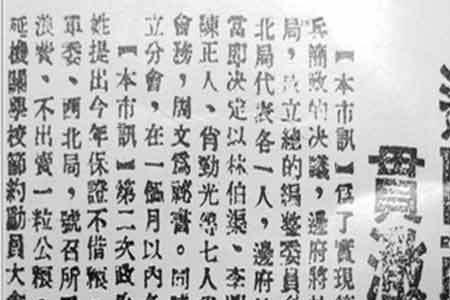 員
【本市訊】爲了實現
兵簡政的决議，邊府將
局，立總的編整委員
北局代表各一人，邊府
當即决定以林伯渠、李
陳正人、肖勁光等七人
會務，周文爲祕書。同
立分會，在一個月以內各
【本市訊】第二次政
姓提出今年保證不借糧
軍委、西北局，號召所
浪費、不出賣一粒公糧
延機關學校節約動員大會